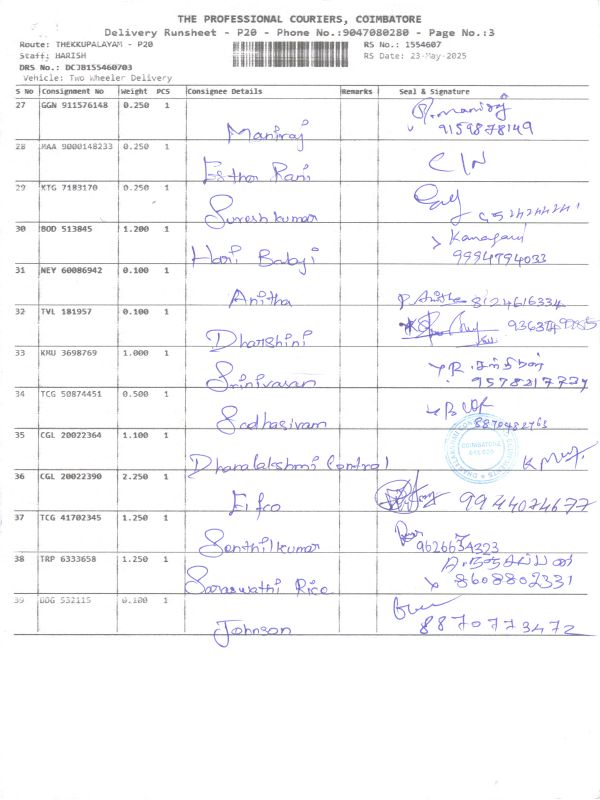 THE PROFESSIONAL COURIERS, COIMBATORE
Delivery Runsheet - P20 - Phone No.:9047080280 - Page No.:3
Route: THEKKUPALAYAM - P20 RS No.: 1554607
Staff: HARISH RS Date: 23-May-2025
DRS No.: DCJB155460703
Vehicle: Two Wheeler Delivery
S No Consignment No Weight PCS Consignee Details Remarks Seal & Signature
27 GGN 911576148 0.250 1
Maniraj 9159878149
28 MAA 9000148233 0.250 1
Esther Rani C/N
29 KTG 7183170 0.250 1
Sureshkumar
30 BOD 513845 1.200 1
Hari Babji 9994794033
31 NEY 60086942 0.100 1
Anitha P Anitha 8124616334
32 TVL 181957 0.100 1
Dharshini
33 KMU 3698769 1.000 1
Srinivasan
34 TCG 50874451 0.500 1
Sadhasivam
35 CGL 20022364 1.100 1 COIMBATORE
Dhanalakshmi Control
36 CGL 20022390 2.250 1
Eifco 9944074677
37 TCG 41702345 1.250 1
Santhilkumar 9626634323
38 TRP 6333658 1.250 1
Saraswathi Rice 8608802331
39 532115 0.100 1
Johnson 8870773472